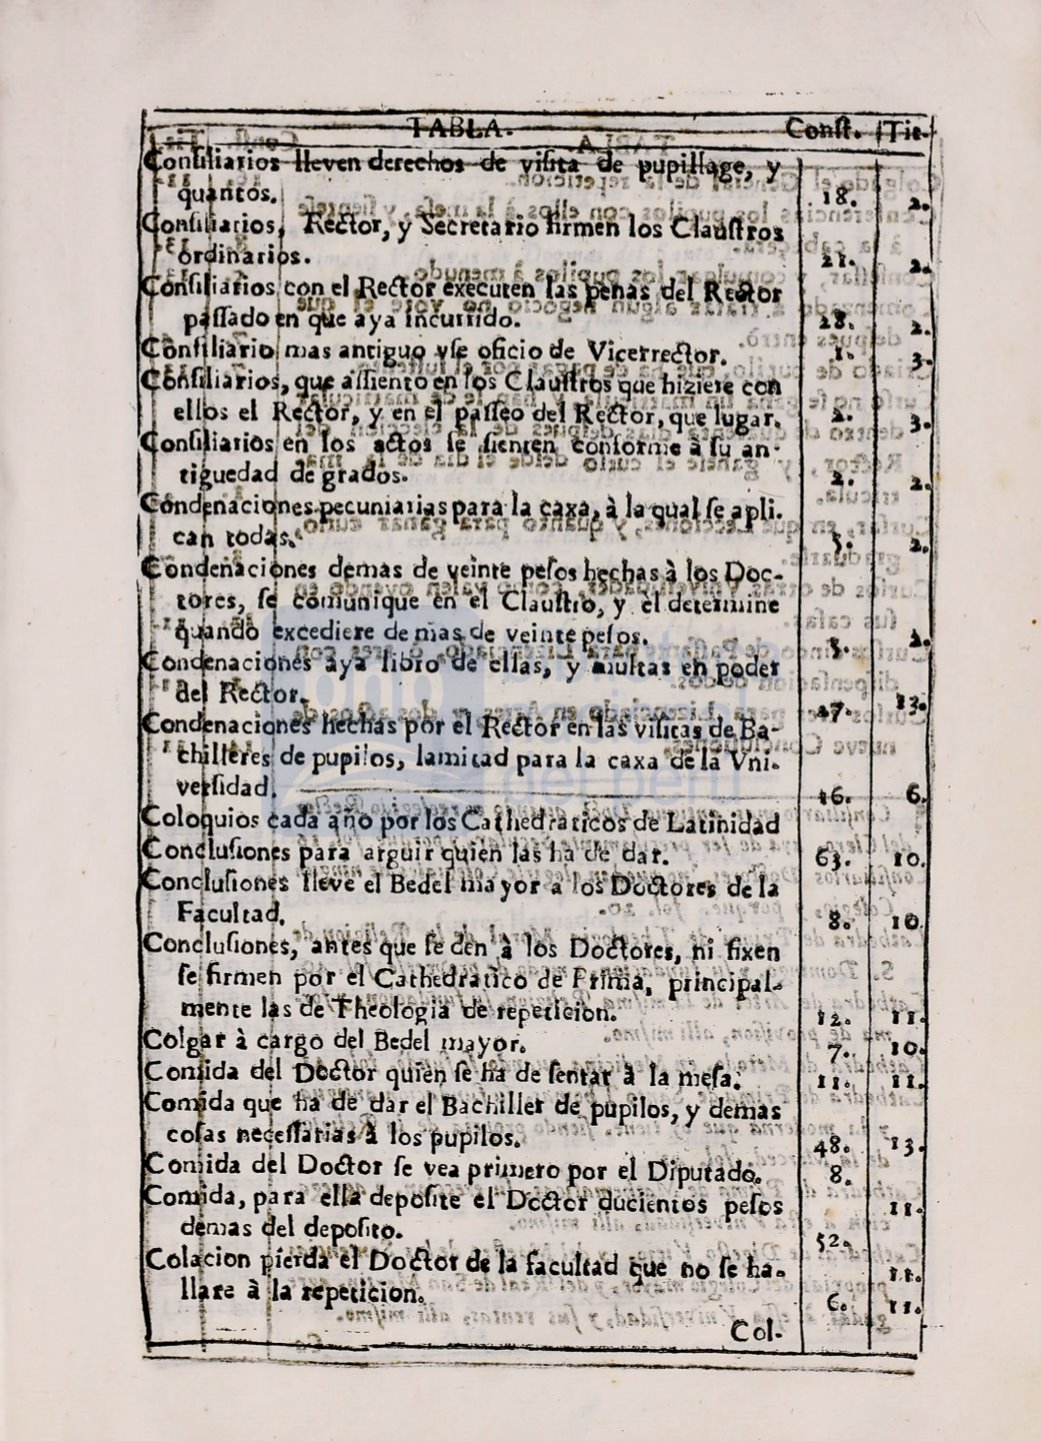 TABLA. Const. Tit.
Consiliarios lleven derechos de visita de pupillage, y
quantos. 18. 2.
Consiliarios, Rector, y Secretario firmen los Claustros
ordinarios. 21. 2.
Consiliarios con el Rector executen las penas del Rector
passado en que aya incurrido. 28. 2.
Consiliario mas antiguo vse oficio de Vicerrector. 1. 3.
Consiliarios, que assiento en los Claustros que hiziere con
ellos el Rector, y en el passeo del Rector, que lugar. 2. 3.
Consiliarios en los actos se sienten conforme à su an-
tiguedad de grados. 2. 2.
Condenaciones pecuniarias para la caxa, à la qual se apli.
can todas. 5. 2.
Condenaciones demas de veinte pesos hechas à los Doc-
tores, se comunique en el Claustro, y el determine
quando excediere de mas de veinte pesos. 5. 2.
Condenaciones aya libro de ellas, y multas en poder
del Rector. 47. 13.
Condenaciones hechas por el Rector en las visitas de Ba-
chilleres de pupilos, la mitad para la caxa de la Vni-
versidad. 16. 6.
Coloquios cada año por los Cathedraticos de Latinidad
Conclusiones para arguir quien las ha de dar. 63. 10.
Conclusiones lleve el Bedel mayor a los Doctores de la
Facultad. 8. 10
Conclusiones, antes que se den à los Doctores, ni fixen
se firmen por el Cathedratico de Prima, principal-
mente las de Theologia de repeticion. 12. 11.
Colgar à cargo del Bedel mayor. 7. 10.
Comida del Doctor quien se ha de sentar à la mesa. 11. 11.
Comida que ha de dar el Bachiller de pupilos, y demas
cosas necessarias à los pupilos. 48. 13.
Comida del Doctor se vea primero por el Diputado. 8.
Comida, para ella deposite el Doctor ducientos pesos 11.
demas del deposito. 52.
Colacion pierda el Doctor de la facultad que no se ha- 11.
llare à la repeticion. 6. 11.
Col-